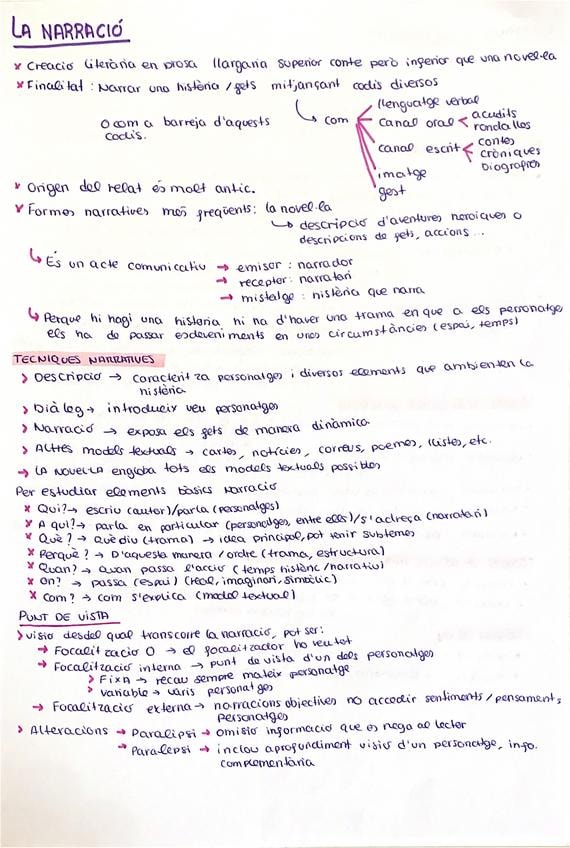 LA NARRACIÓ
× Creació literària en prosa llargaria superior conte però inferior que una novel·la
× Finalitat: Narrar una història / fets mitjançant codis diversos
↳ com
llenguatge verbal
canal oral < acudits
rondalles
canal escrit < contes
cròniques
biografies
imatge
gest
O com a barreja d'aquests
codis.
Origen del relat és molt antic.
Formes narratives més freqüents: la novel·la
↳ descripció d'aventures heroiques o
descripcions de fets, accions...
↳ És un acte comunicatiu → emisor: narrador
→ receptor: narratari
→ mistatge: història que narra
↳ Perque hi hagi una historia hi ha d'haver una trama en que a els personatges
els ha de passar esdeveniments en unes circumstàncies (espai, temps)
TECNIQUES NARRATIVES
> Descripció → caracteritza personatges i diversos elements que ambienten la
història
> Diàleg → introdueix veu personatges
> Narració → exposa els fets de manera dinàmica
> Altres models textuals → cartes, notícies, correus, poemes, llistes, etc.
→ LA NOVEL·LA engloba tots els models textuals possibles
Per estudiar elements bàsics narració
× Qui? → escriu (autor)/parla (personatges)
× A qui? → parla en particular (personatges, entre ells)/s'adreça (narratari)
× Què? → què diu (trama) → idea principal, pot tenir subtemes
× Perquè? → D'aquesta manera / ordre (trama, estructura)
× Quan? → quan passa l'acció (temps històric / narratiu)
× On? → passa (espai) (real, imaginari, simbòlic)
× Com? → com s'explica (model textual)
PUNT DE VISTA
> visió desdel qual transcorre la narració, pot ser:
→ Focalització 0 → el focalitzador ho veu tot
→ Focalització interna → punt de vista d'un dels personatges
> Fixa → recau sempre mateix personatge
> variable → varis personatges
→ Focalització externa → narracions objectives no accedir sentiments / pensaments
personatges
> Alteracions → Paralipsi → omisió informació que es nega al lector
→ Paralepsi → inclou aprofundiment visió d'un personatge, info.
complementària